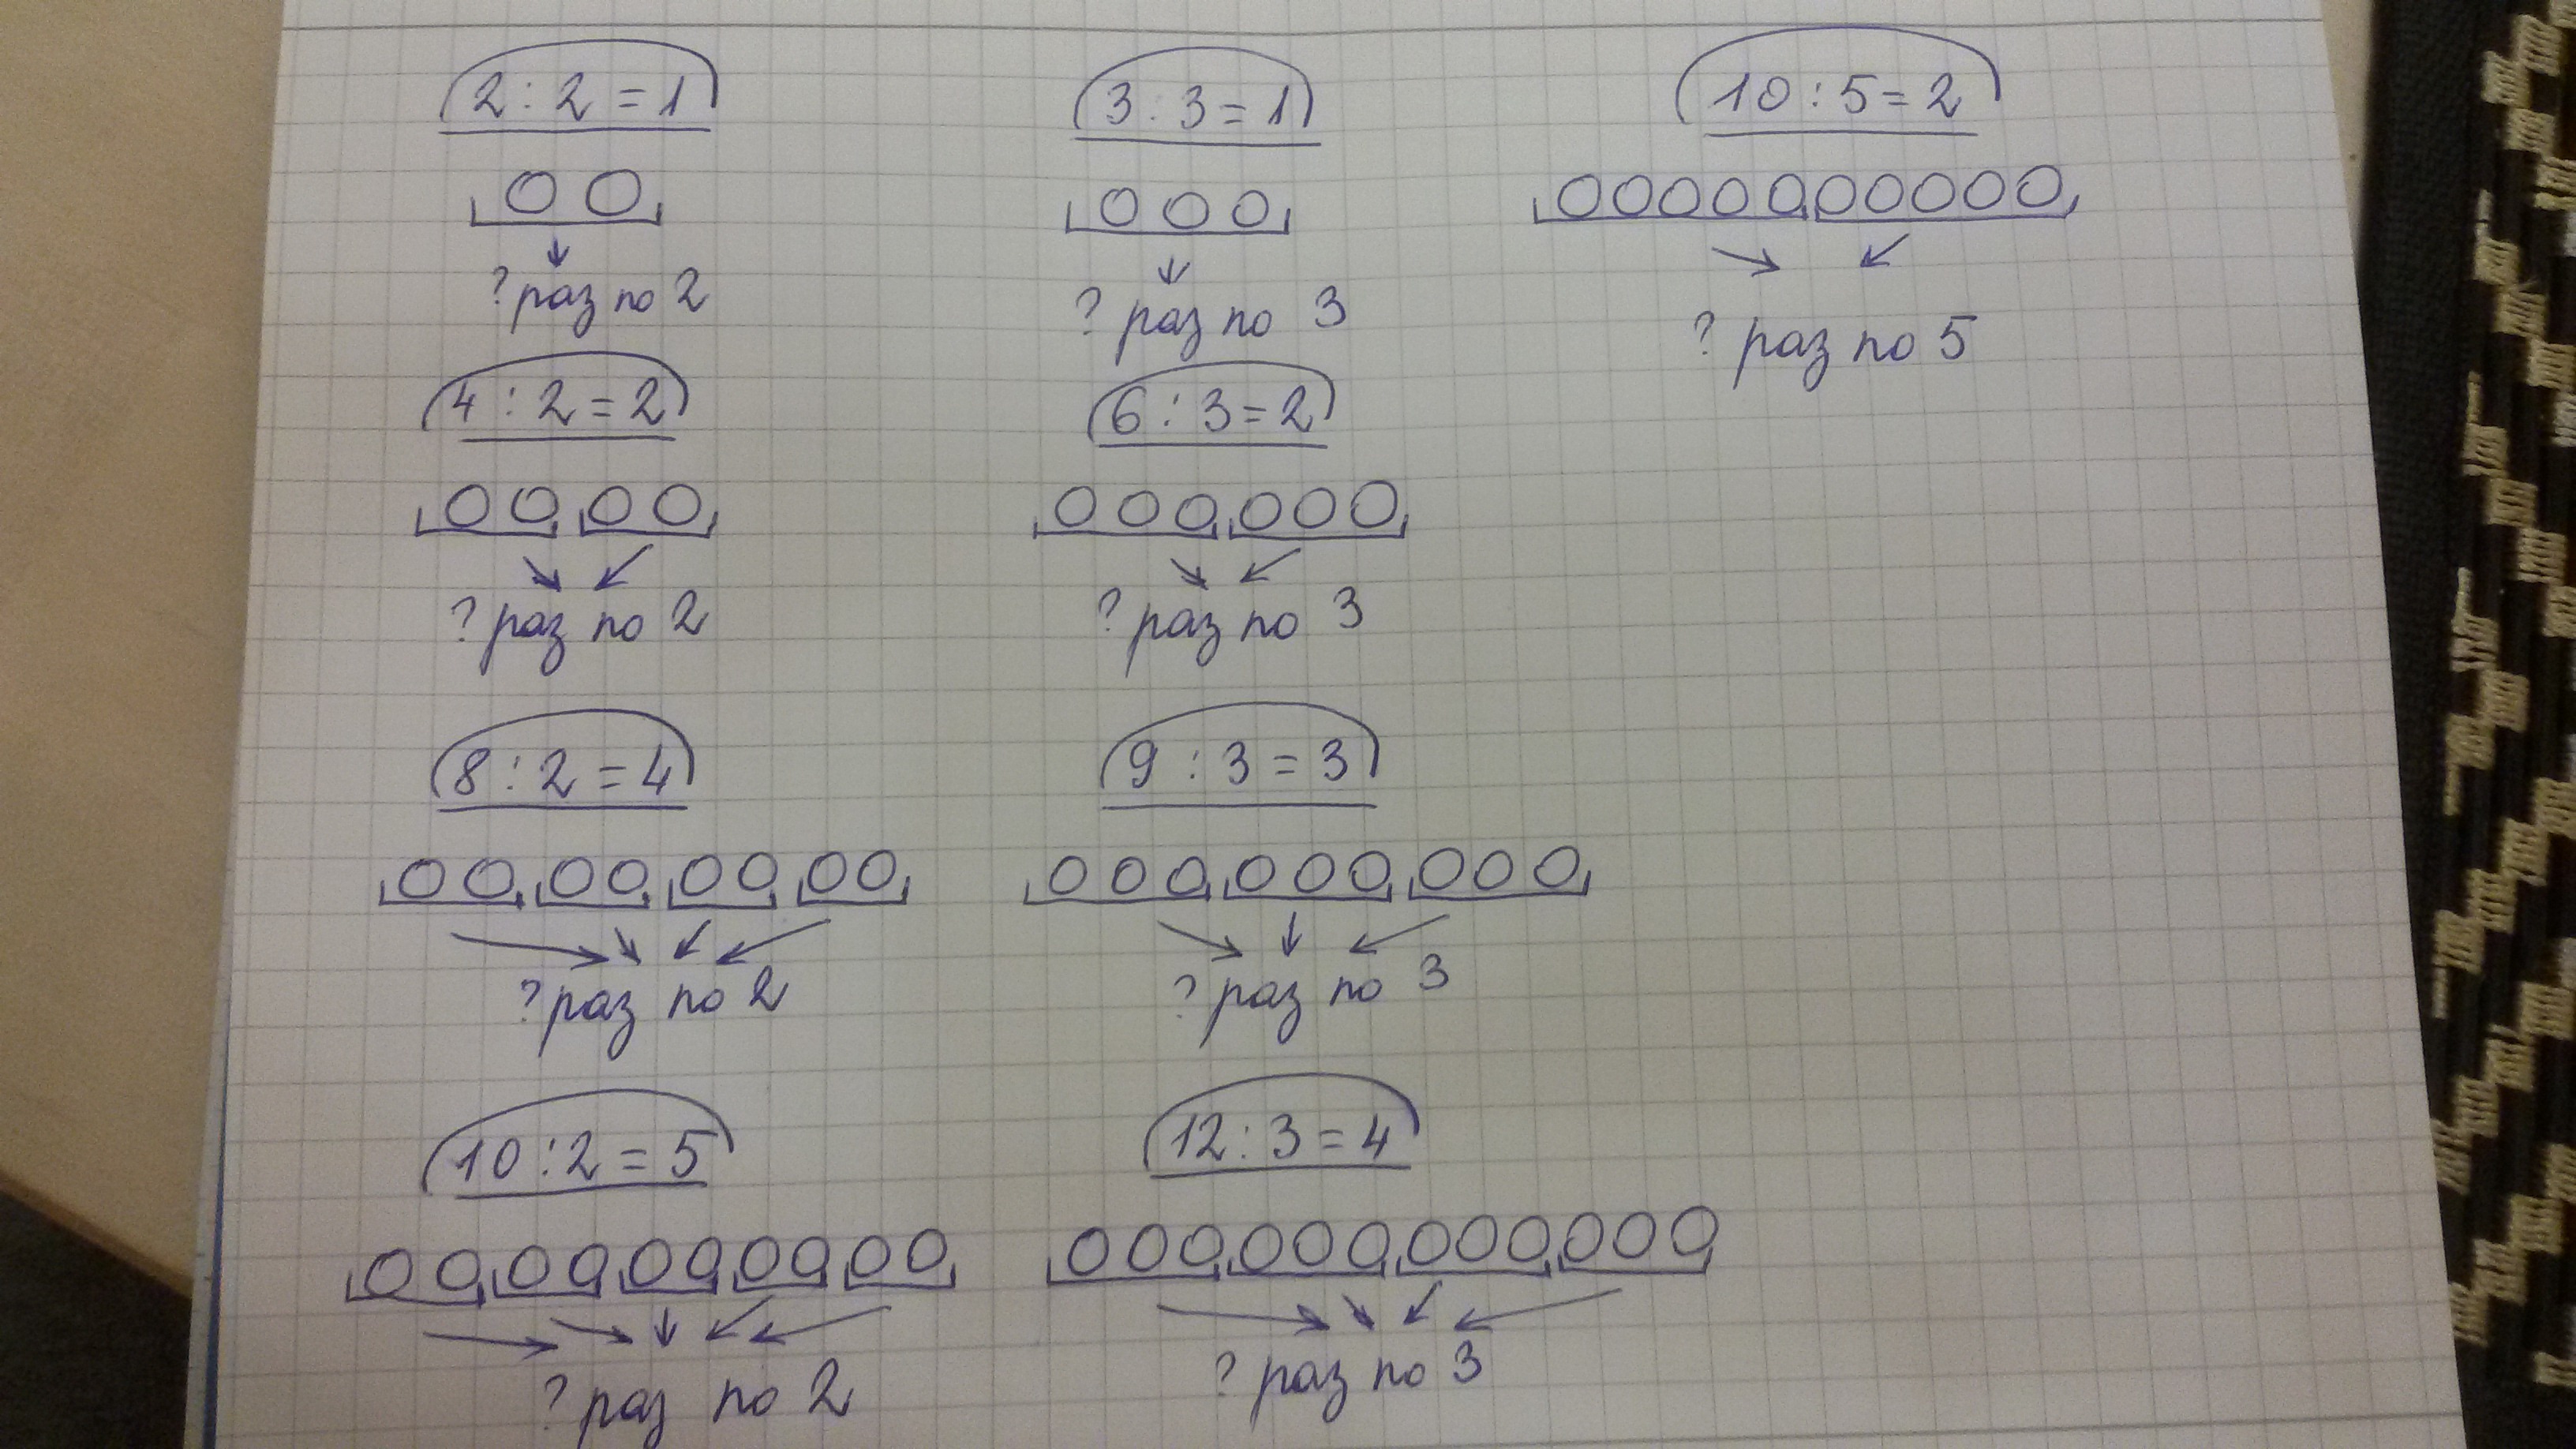 2 : 2 = 1
? раз по 2
4 : 2 = 2
? раз по 2
8 : 2 = 4
? раз по 2
10 : 2 = 5
? раз по 2
3 : 3 = 1
? раз по 3
6 : 3 = 2
? раз по 3
9 : 3 = 3
? раз по 3
12 : 3 = 4
? раз по 3
10 : 5 = 2
? раз по 5